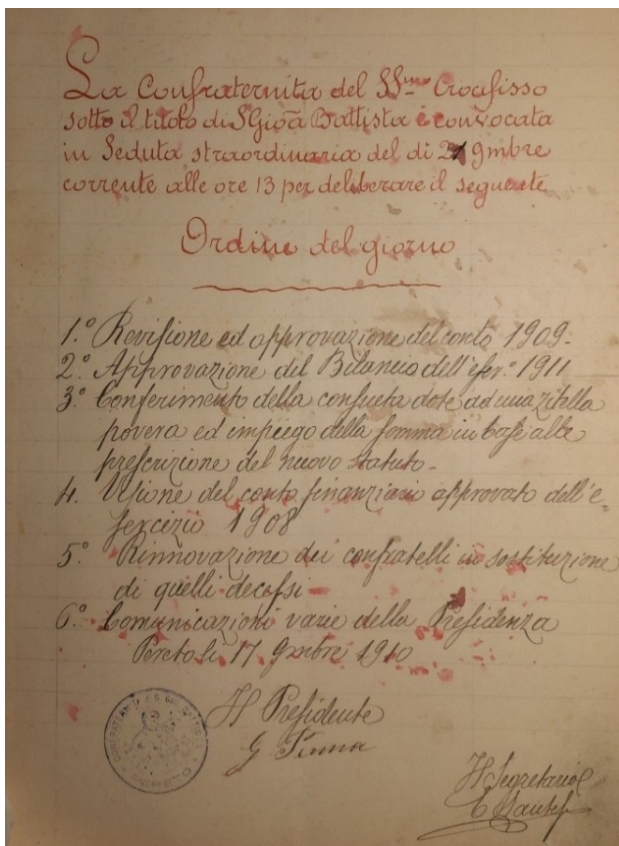 La Confraternita del SS.mo Crocifisso
sotto il titolo di S Gioa Battista è convocata
in Seduta straordinaria del dì 9mbre
corrente alle ore 13 per deliberare il seguente
Ordine del giorno
1.° Revisione ed approvazione del conto 1909.
2.° Approvazione del Bilancio dell'eser.° 1911
3° Conferimento della consueta dote ad una zitella
povera ed impiego della somma in base alle
prescrizione del nuovo statuto.
4. Visione del conto finanziario approvato dell'e-
sercizio 1908
5° Rinnovazione dei confratelli in sostituzione
di quelli decessi
6.° Comunicazioni varie della Presidenza
Pereto li 17. 9mbre 1910
Il Presidente
G
Il Segretario